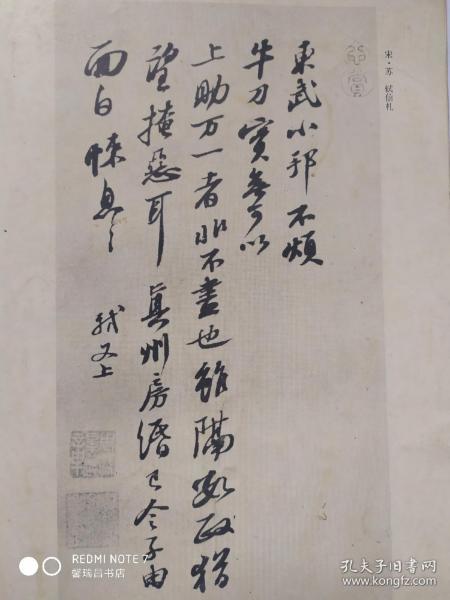 宋·苏 轼信札
東武小邦不煩
牛刀實無可以
上助万一者非不盡也雖隔數政猶
望掩惡耳 真州房緡已令子由
面白悚息々
軾又上
REDMI NOTE 7
馨瑞昌书店
孔夫子旧书网
book.kongfz.com